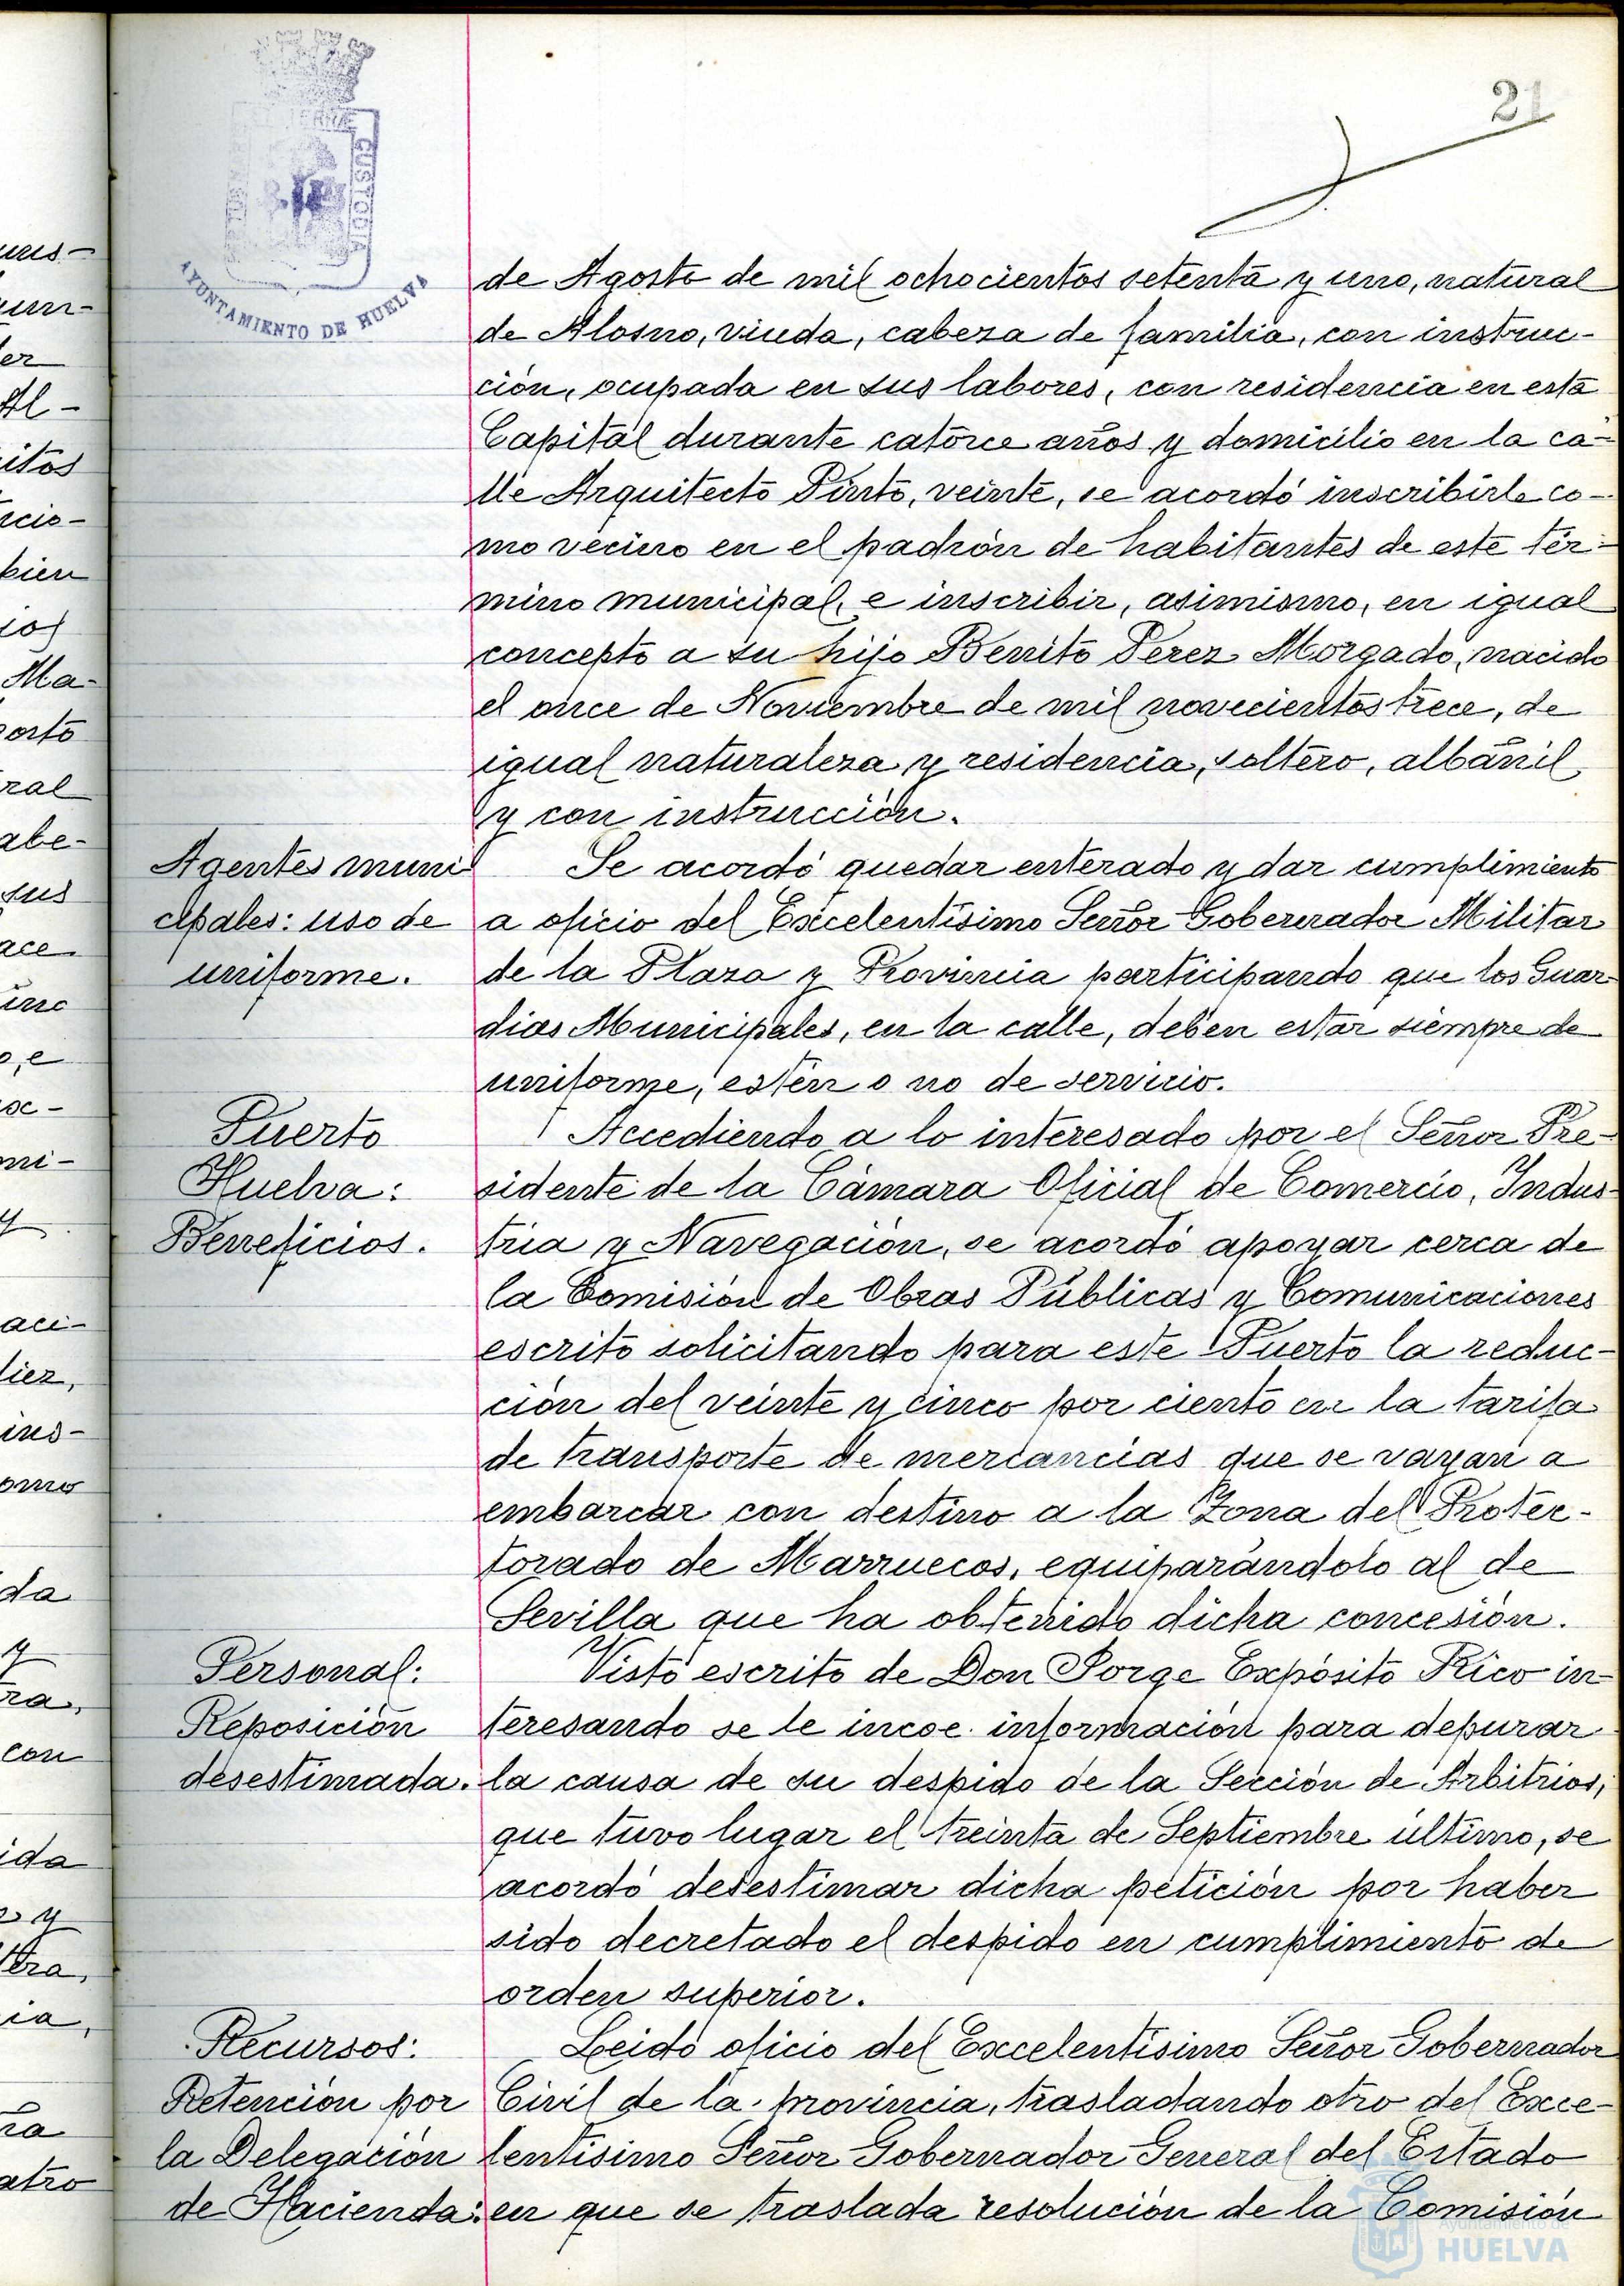 21
PORTUS
TERRAE
CUSTODIA
AYUNTAMIENTO DE HUELVA
de Agosto de mil ochocientos setenta y uno, natural
de Alosno, viuda, cabeza de familia, con instruc-
ción, ocupada en sus labores, con residencia en esta
Capital durante catorce años y domicilio en la ca-
lle Arquitecto Pinto, veinte, se acordó inscribirle co-
mo vecino en el padrón de habitantes de este tér-
mino municipal, e inscribir, asimismo, en igual
concepto a su hijo Benito Perez Morgado, nacido
el once de Noviembre de mil novecientos trece, de
igual naturaleza y residencia, soltero, albañil
y con instrucción.
Agentes muni
cipales: uso de
uniforme.
Se acordó quedar enterado y dar cumplimiento
a oficio del Excelentísimo Señor Gobernador Militar
de la Plaza y Provincia participando que los Guar
dias Municipales, en la calle, deben estar siempre de
uniforme, estén o no de servicio.
Puerto
Huelva:
Beneficios.
Accediendo a lo interesado por el Señor Pre-
sidente de la Cámara Oficial de Comercio, Indus-
tria y Navegación, se acordó apoyar cerca de
la Comisión de Obras Públicas y Comunicaciones
escrito solicitando para este Puerto la reduc-
ción del veinte y cinco por ciento en la tarifa
de transporte de mercancias que se vayan a
embarcar con destino a la Zona del Protec-
torado de Marruecos, equiparándolo al de
Sevilla que ha obtenido dicha concesión.
Personal:
Reposición
desestimada.
Visto escrito de Don Jorge Expósito Rico in-
teresando se le incoe información para depurar
la causa de su despido de la Sección de Arbitrios,
que tuvo lugar el treinta de Septiembre último, se
acordó desestimar dicha petición por haber
sido decretado el despido en cumplimiento de
orden superior.
Recursos:
Retención por
la Delegación
de Hacienda:
Leido oficio del Excelentísimo Señor Gobernador
Civil de la provincia, trasladando otro del Exce-
lentísimo Señor Gobernador General del Estado
en que se traslada resolución de la Comisión
Ayuntamiento de
HUELVA